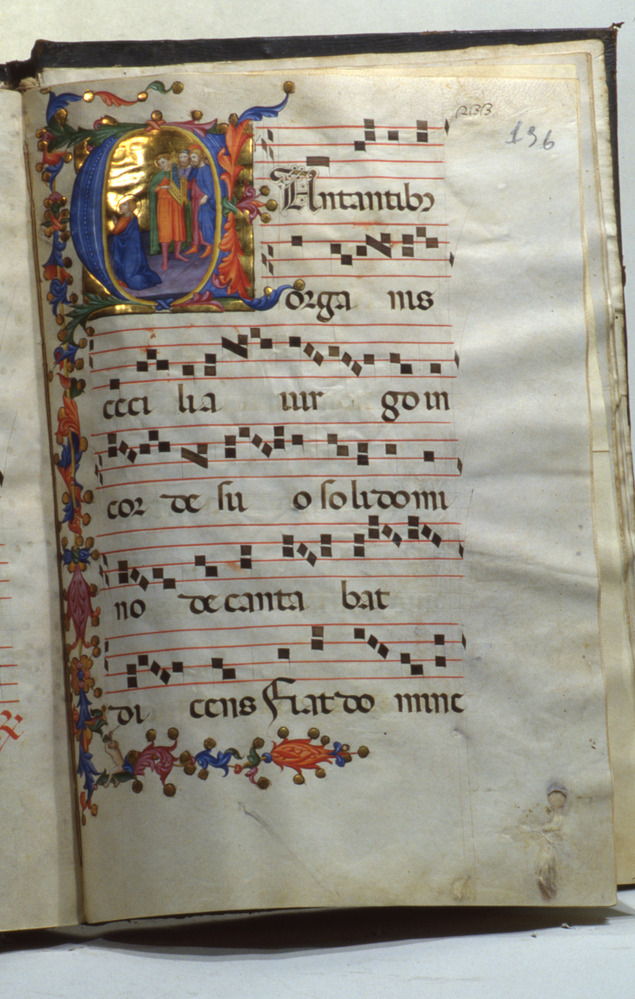 1213
136
CAntantibꝰ
orga nis
ceci lia uir go in
cor de su o soli domi
no decanta bat
di cens Fiat do mine